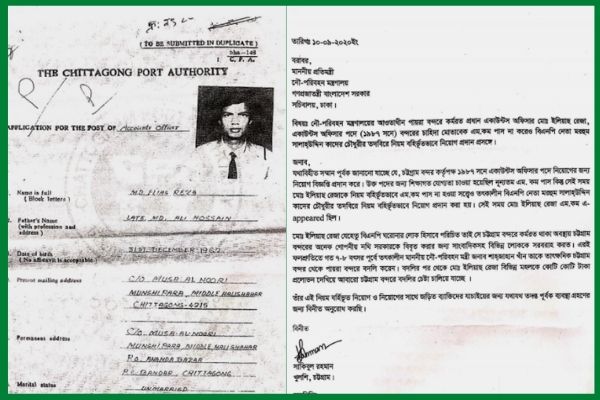 ( TO BE SUBMITTED IN DUPLICATE )
C. P. A.
THE CHITTAGONG PORT AUTHORITY
APPLICATION FOR THE POST OF Accounts Officer
Name is full
( Block letters )
MD. ILIAS REVA
Father's Name
(with profession and
address )
LATE MD. ALI HOSSAIN
Date of birth
(No affidavit is acceptable)
31ST DECEMBER 1960
Present mailing address
C/O MUSA AL NOORI
MUNSHI PARA, MIDDLE HALISHAHAR
CHITTAGONG-4215
C/O. MUSA AL NOORI
Permanent address
MUNSHI PARA, MIDDLE HALISHAHAR
P.O. ANANDA BAZAR
P.S. BANDAR, CHITTAGONG
Marital status
UNMARRIED
তারিখঃ ১০-০৯-২০২০ইং
বরাবর,
মাননীয় প্রতিমন্ত্রী
নৌ-পরিবহন মন্ত্রণালয়
গণপ্রজাতন্ত্রী বাংলাদেশ সরকার
সচিবালয়, ঢাকা।
বিষয়ঃ নৌ-পরিবহন মন্ত্রণালয়ের আওতাধীন পায়রা বন্দরে কর্মরত প্রধান একাউন্টস অফিসার মোঃ ইলিয়াছ রেজা,
একাউন্টস অফিসার পদে (১৯৮৭ সনে) বন্দরের চাহিদা মোতাবেক এম.কম পাস না করেও বিএনপি নেতা মরহুম
সালাহ্উদ্দিন কাদের চৌধুরীর তদবিরে নিয়ম বহির্ভূতভাবে নিয়োগ প্রদান প্রসঙ্গে।
জনাব,
যথাবিহীত সম্মান পূর্বক জানানো যাচ্ছে যে, চট্টগ্রাম বন্দর কর্তৃপক্ষ ১৯৮৭ সনে একাউন্টস অফিসার পদে নিয়োগের জন্য
নিয়োগ বিজ্ঞপ্তি প্রদান করে। উক্ত পদের জন্য শিক্ষাগত যোগ্যতা চাওয়া হয়েছিল ন্যূনতম এম. কম পাস কিন্তু সেই সময়
মোঃ ইলিয়াছ রেজাকে নিয়ম বহির্ভূতভাবে এম.কম পাস না হওয়া সত্ত্বেও তৎকালীন বিএনপি নেতা মরহুম সালাহ্উদ্দিন
কাদের চৌধুরীর তদবিরে নিয়োগ প্রদান করা হয়। সেই সময় মোঃ ইলিয়াছ রেজা এম.কম এ-
appeared ছিল।
মোঃ ইলিয়াছ রেজা যেহেতু বিএনপি ঘরোনার লোক হিসাবে পরিচিত তাই সে চট্টগ্রাম বন্দরে কর্মরত থাকা অবস্থায় চট্টগ্রাম
বন্দরের অনেক গোপনীয় নথি সরকারকে বিব্রত করার জন্য সাংবাদিকসহ বিভিন্ন লোককে সরবরাহ করত। এরই
ফলশ্রুতিতে গত ৭-৮ বৎসর পূর্বে তৎকালীন মাননীয় নৌ-পরিবহন মন্ত্রী জনাব শাহজাহান খাঁন তাকে তাৎক্ষণিক চট্টগ্রাম
বন্দর থেকে পায়রা বন্দরে বদলি করেন। বদলির পর থেকে মোঃ ইলিয়াছ রেজা বিভিন্ন মহলকে কোটি কোটি টাকা
প্রলোভন দেখিয়ে আবারো চট্টগ্রাম বন্দরে বদলির চেষ্টা চালিয়ে যাচ্ছে।
তাঁর এই নিয়ম বহির্ভূত নিয়োগ ও নিয়োগের সাথে জড়িত ব্যক্তিদের যাচাইয়ের জন্য যথাযথ তদন্ত পূর্বক ব্যবস্থা গ্রহণের
জন্য বিনীত অনুরোধ করছি।
বিনীত
সাকিবুল রহমান
খুলশি, চট্টগ্রাম।